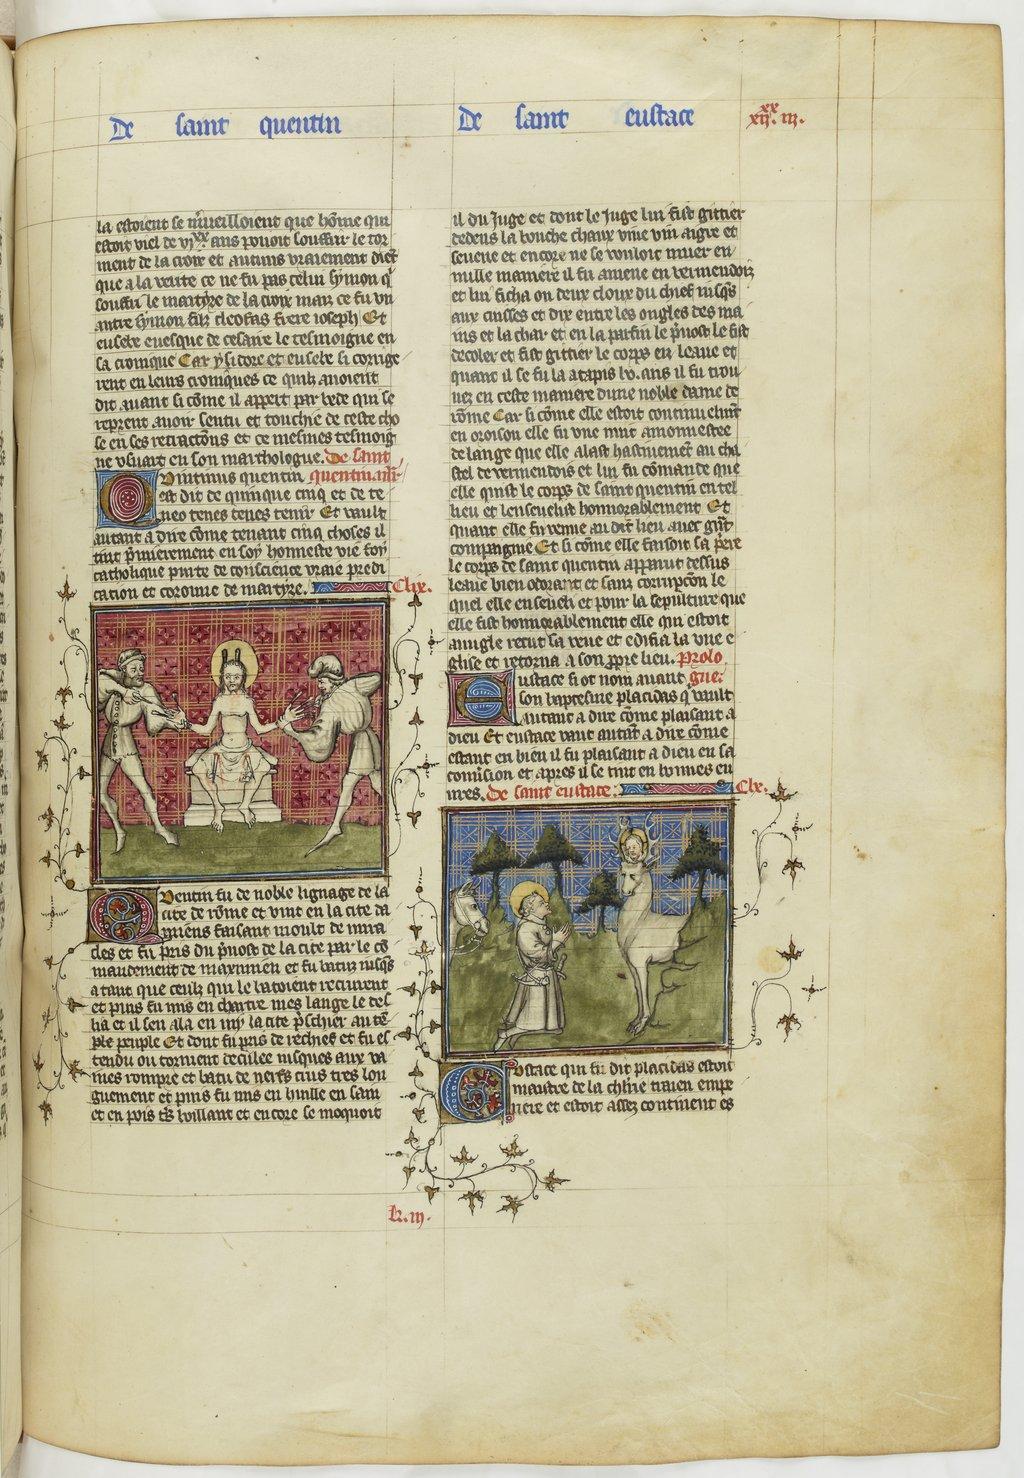 De saint quentin
De saint eustace
xii.xx iii.
la estoient se m'veilloient que home qui
estoit viel de vi xx ans pouoit souffrir le tor
ment de la croix et aucuns vraiement dient
que a la verite ce ne fu pas celui symon q'
souffri le martyre de la croix mais ce fu vn
autre symon filz cleofas frere ioseph Et
eusebe euesque de cesaire le tesmoigne en
sa cronique Car ysidore et eusebe si corrige
rent en leurs croniques ce quilz auoient
dit auant si come il appert par bede qui se
reprent auoir sentu et touchie de ceste cho
se en ses retractons et ce mesmes tesmoig
ne vsuart en son marthologue. De saint
Quintinus quentin quentin
est dit de quinque cinq et de te
neo tenes tenes tenir Et vault
autant a dire come tenant cinq choses il
tint p'mierement en soy honneste vie foy
catholique purte de conscience vraie predi
cation et coronne de martyre. Clix.
Quentin fu de noble lignage de la
cite de rome et vint en la cite da
miens faisant moult de mira
cles et fu pris du p'uost de la cite par le co
mandement de maximien et fu batuz iusqs
a tant que ceulz qui le batoient recreurent
et puis fu mis en chartre mes lange le des
lia et il sen ala en my la cite p'schier au
ple peuple Et dont fu pris de rechief et fu es
tendu ou torment deculee iusques aux va
ines rompre et batu de nerfs crus tres lon
guement et puis fu mis en huille en sain
et en pois boillant et encore se moquoit
il du Juge et dont le Juge lui fist gitter
dedens la bouche chaux viue vin aigre et
seneue et encore ne se vouloit muer en
nulle maniere il fu amene en vermendoiz
et lui ficha on deux cloux du chief iusqs
aux cuisses et dix entre les ongles des ma
ins et la char et en la parfin le p'uost le fist
decoler et fist gittier le corps en leaue et
quant il se fu la atapis lv. ans il fu trou
uez en ceste maniere dune noble dame de
rome Car si come elle estoit continuelmt
en oroison elle fu vne nuit amonnestee
de lange que elle alast hastiuement au cha
stel de vermendois et lui fu comande que
elle quist le corps de saint quentin en tel
lieu et lenseuelist honnorablement Et
quant elle fu venue au dit lieu auec gnt
compaignie Et si come elle faisoit sa p'ere
le corps de saint quentin apparut dessus
leaue bien odorant et sans corrupcon le
quel elle enseueli et pour la sepulture que
elle fist honnorablement elle qui estoit
auugle recut sa veue et edifia la vne e
glise et retorna a son ppre lieu. Prolo
Eustace si ot nom auant gue.
son baptesme placidas q' vault
autant a dire come plaisant a
dieu Et eustace vaut autat a dire come
estant en bien il fu plaisant a dieu en sa
conu'sion et apres il se tint en bonnes eu
ures. De saint eustace: Clx.
Eustace qui fu dit placidas estoit
maistre de la ch'lrie traien empe
reere et estoit assez continent es
k. iii.